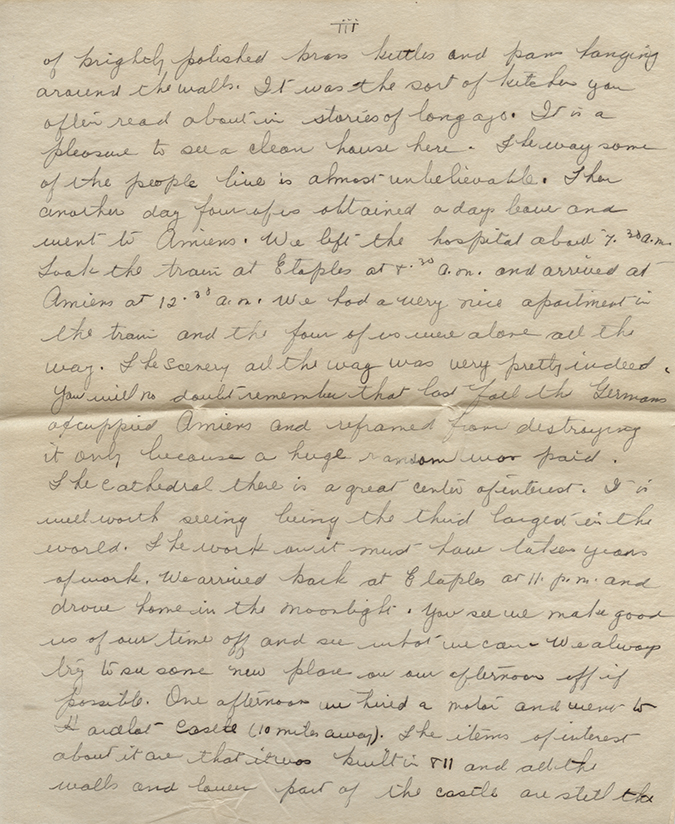 iii
of brightly polished brass kettles and pans hanging
around the walls. It was the sort of kitchen you
often read about in stories of long ago. It is a
pleasure to see a clean house here. The way some
of the people live is almost unbelievable. Then
another day four of us obtained a days leave and
went to Amiens. We left the hospital about 7.30 a.m.
Took the train at Etaples at 8.30 a.m. and arrived at
Amiens at 12.30 a.m. We had a very nice apartment in
the train and the four of us were alone all the
way. The scenery all the way was very pretty indeed.
You will no doubt remember that last fall the Germans
occuppied Amiens and refrained from destroying
it only because a huge ransom was paid.
The Cathedral there is a great center of interest. It is
well worth seeing being the third largest in the
world. The work on it must have taken years
of work. We arrived back at Etaples at 11. p.m. and
drove home in the moonlight. You see we make good
us of our time off and see what we can. We always
try to see some new place on our afternoon off if
possible. One afternoon we hired a motor and went to
Hardlot Castle (10 miles away). The items of interest
about it are that it was built in 811 and all the
walls and lower part of the castle are still the